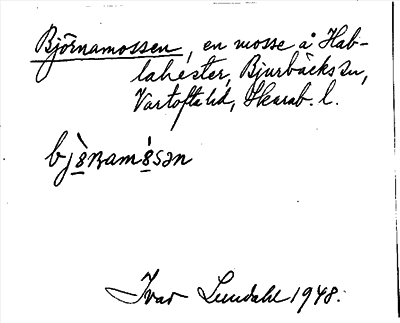 Björnamossen, en mosse å Hab-
lahester, Bjurbäcks sn,
Vartofta hd, Skarab. l.
bjònam`osən
Ivar Lundahl 1948.